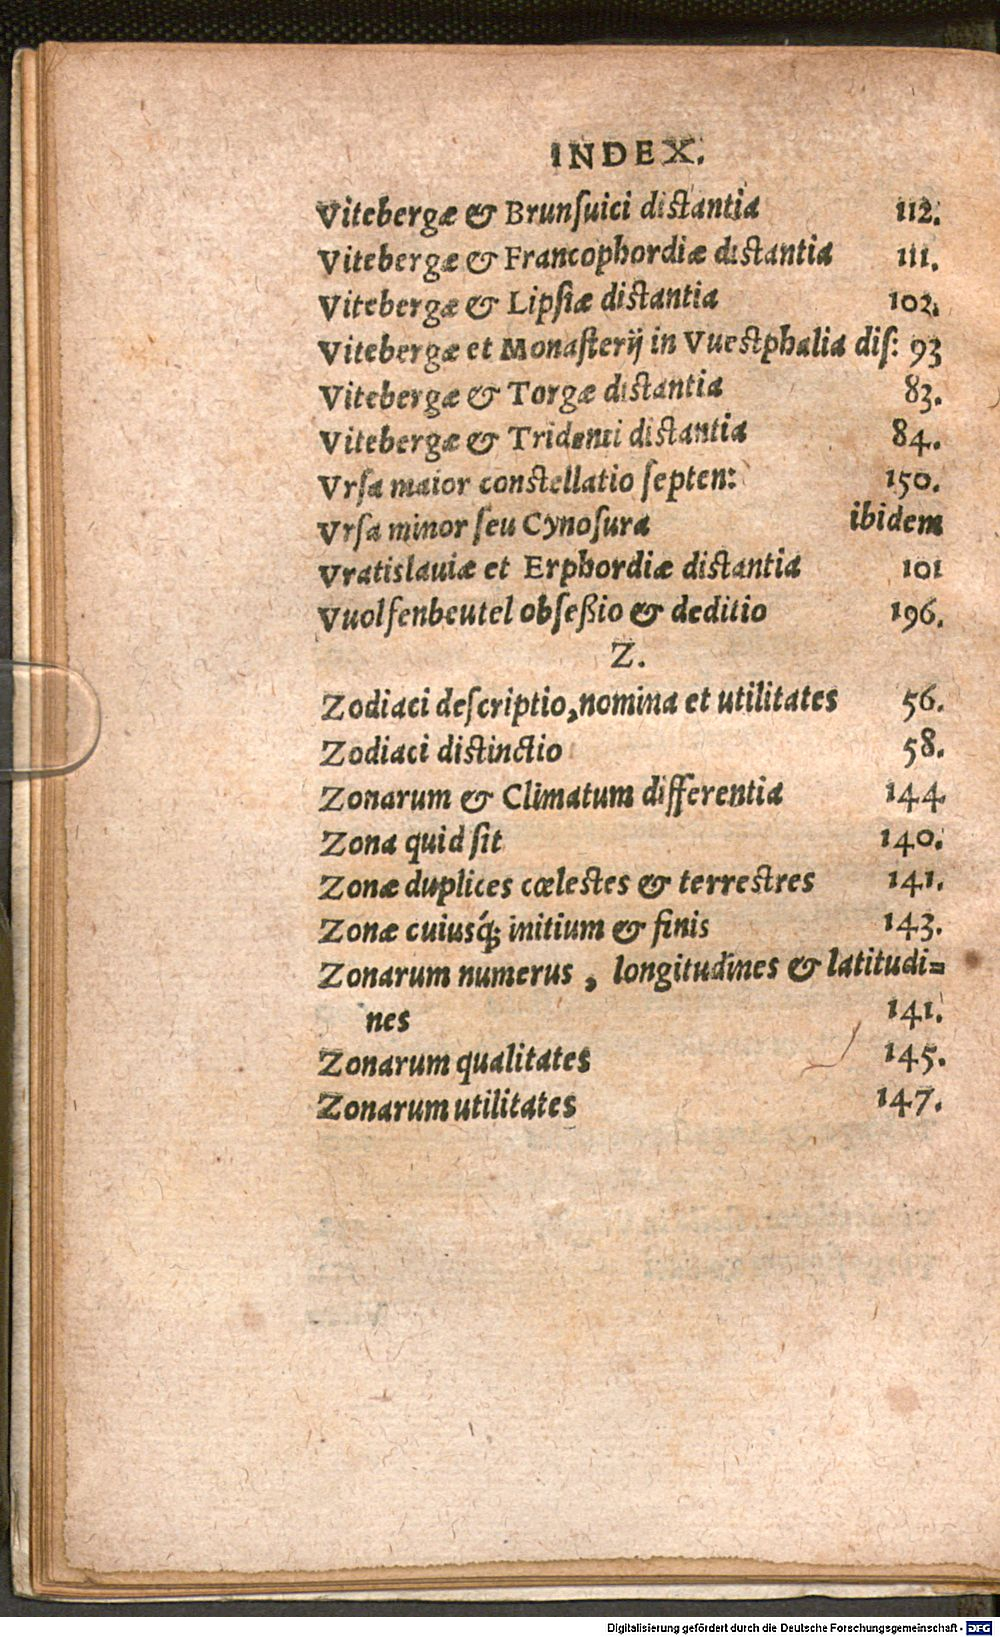 INDEX.
Vitebergæ & Brunſuici distantia 112.
Vitebergæ & Francophordiæ distantia 111.
Vitebergæ & Lipſiæ distantia 102.
Vitebergæ et Monaſterij in Vuestphalia diſ: 93
Vitebergæ & Torgæ distantia 83.
Vitebergæ & Tridenti distantia 84.
Vrſa maior constellatio ſepten: 150.
Vrſa minor ſeu Cynoſura ibidem
Vratislauiæ et Erphordiæ distantia 101
Vuolfenbeutel obſeßio & deditio 196.
Z.
Zodiaci deſcriptio, nomina et utilitates 56.
Zodiaci distinctio 58.
Zonarum & Climatum differentia 144
Zona quid ſit 140.
Zonæ duplices cœlestes & terrestres 141.
Zonæ cuiusq́; initium & finis 143.
Zonarum numerus, longitudines & latitudi=
nes 141.
Zonarum qualitates 145.
Zonarum utilitates 147.
Digitalisierung gefördert durch die Deutsche Forschungsgemeinschaft - DFG